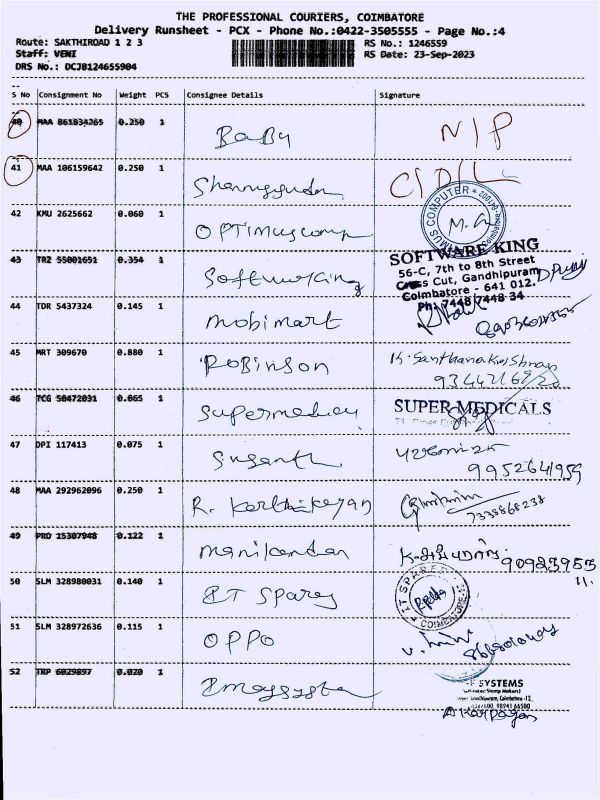 THE PROFESSIONAL COURIERS, COIMBATORE
Delivery Runsheet - PCX - Phone No.:0422-3505555 - Page No.:4
Route: SAKTHIROAD 1 2 3
RS No.: 1246559
Staff: VENI
RS Date: 23-Sep-2023
DRS No.: DCJB124655904
S No Consignment No Weight PCS Consignee Details Signature
40 MAA 861834265 0.250 1 BaBy N/P
41 MAA 106159642 0.250 1
42 KMU 2625662 0.060 1 OPTimuscomp
MUS COMPUTER
Coimbatore
43 TRZ 55001651 0.354 1 Softwarking
SOFTWARE KING
56-C, 7th to 8th Street
Cross Cut, Gandhipuram
Coimbatore - 641 012.
Ph: 7448 7448 34
44 TDR 5437324 0.145 1 mobimart
45 MRT 309670 0.880 1 Robinson K. Santhanakrishnan
46 TCG 50472031 0.065 1 supermedical
SUPER MEDICALS
47 DPI 117413 0.075 1 Susanth
9952641959
48 MAA 292962096 0.250 1 R. Karthikeyan
7338868238
49 PRO 15307948 0.122 1 manikandan
50 SLM 328980031 0.140 1 IT Spares
IT SPARES
COIMBATORE
51 SLM 328972636 0.115 1 OPPO
52 TRP 6029897 0.020 1
SYSTEMS
Coimbatore -12.
98941 66500
A Karpagam